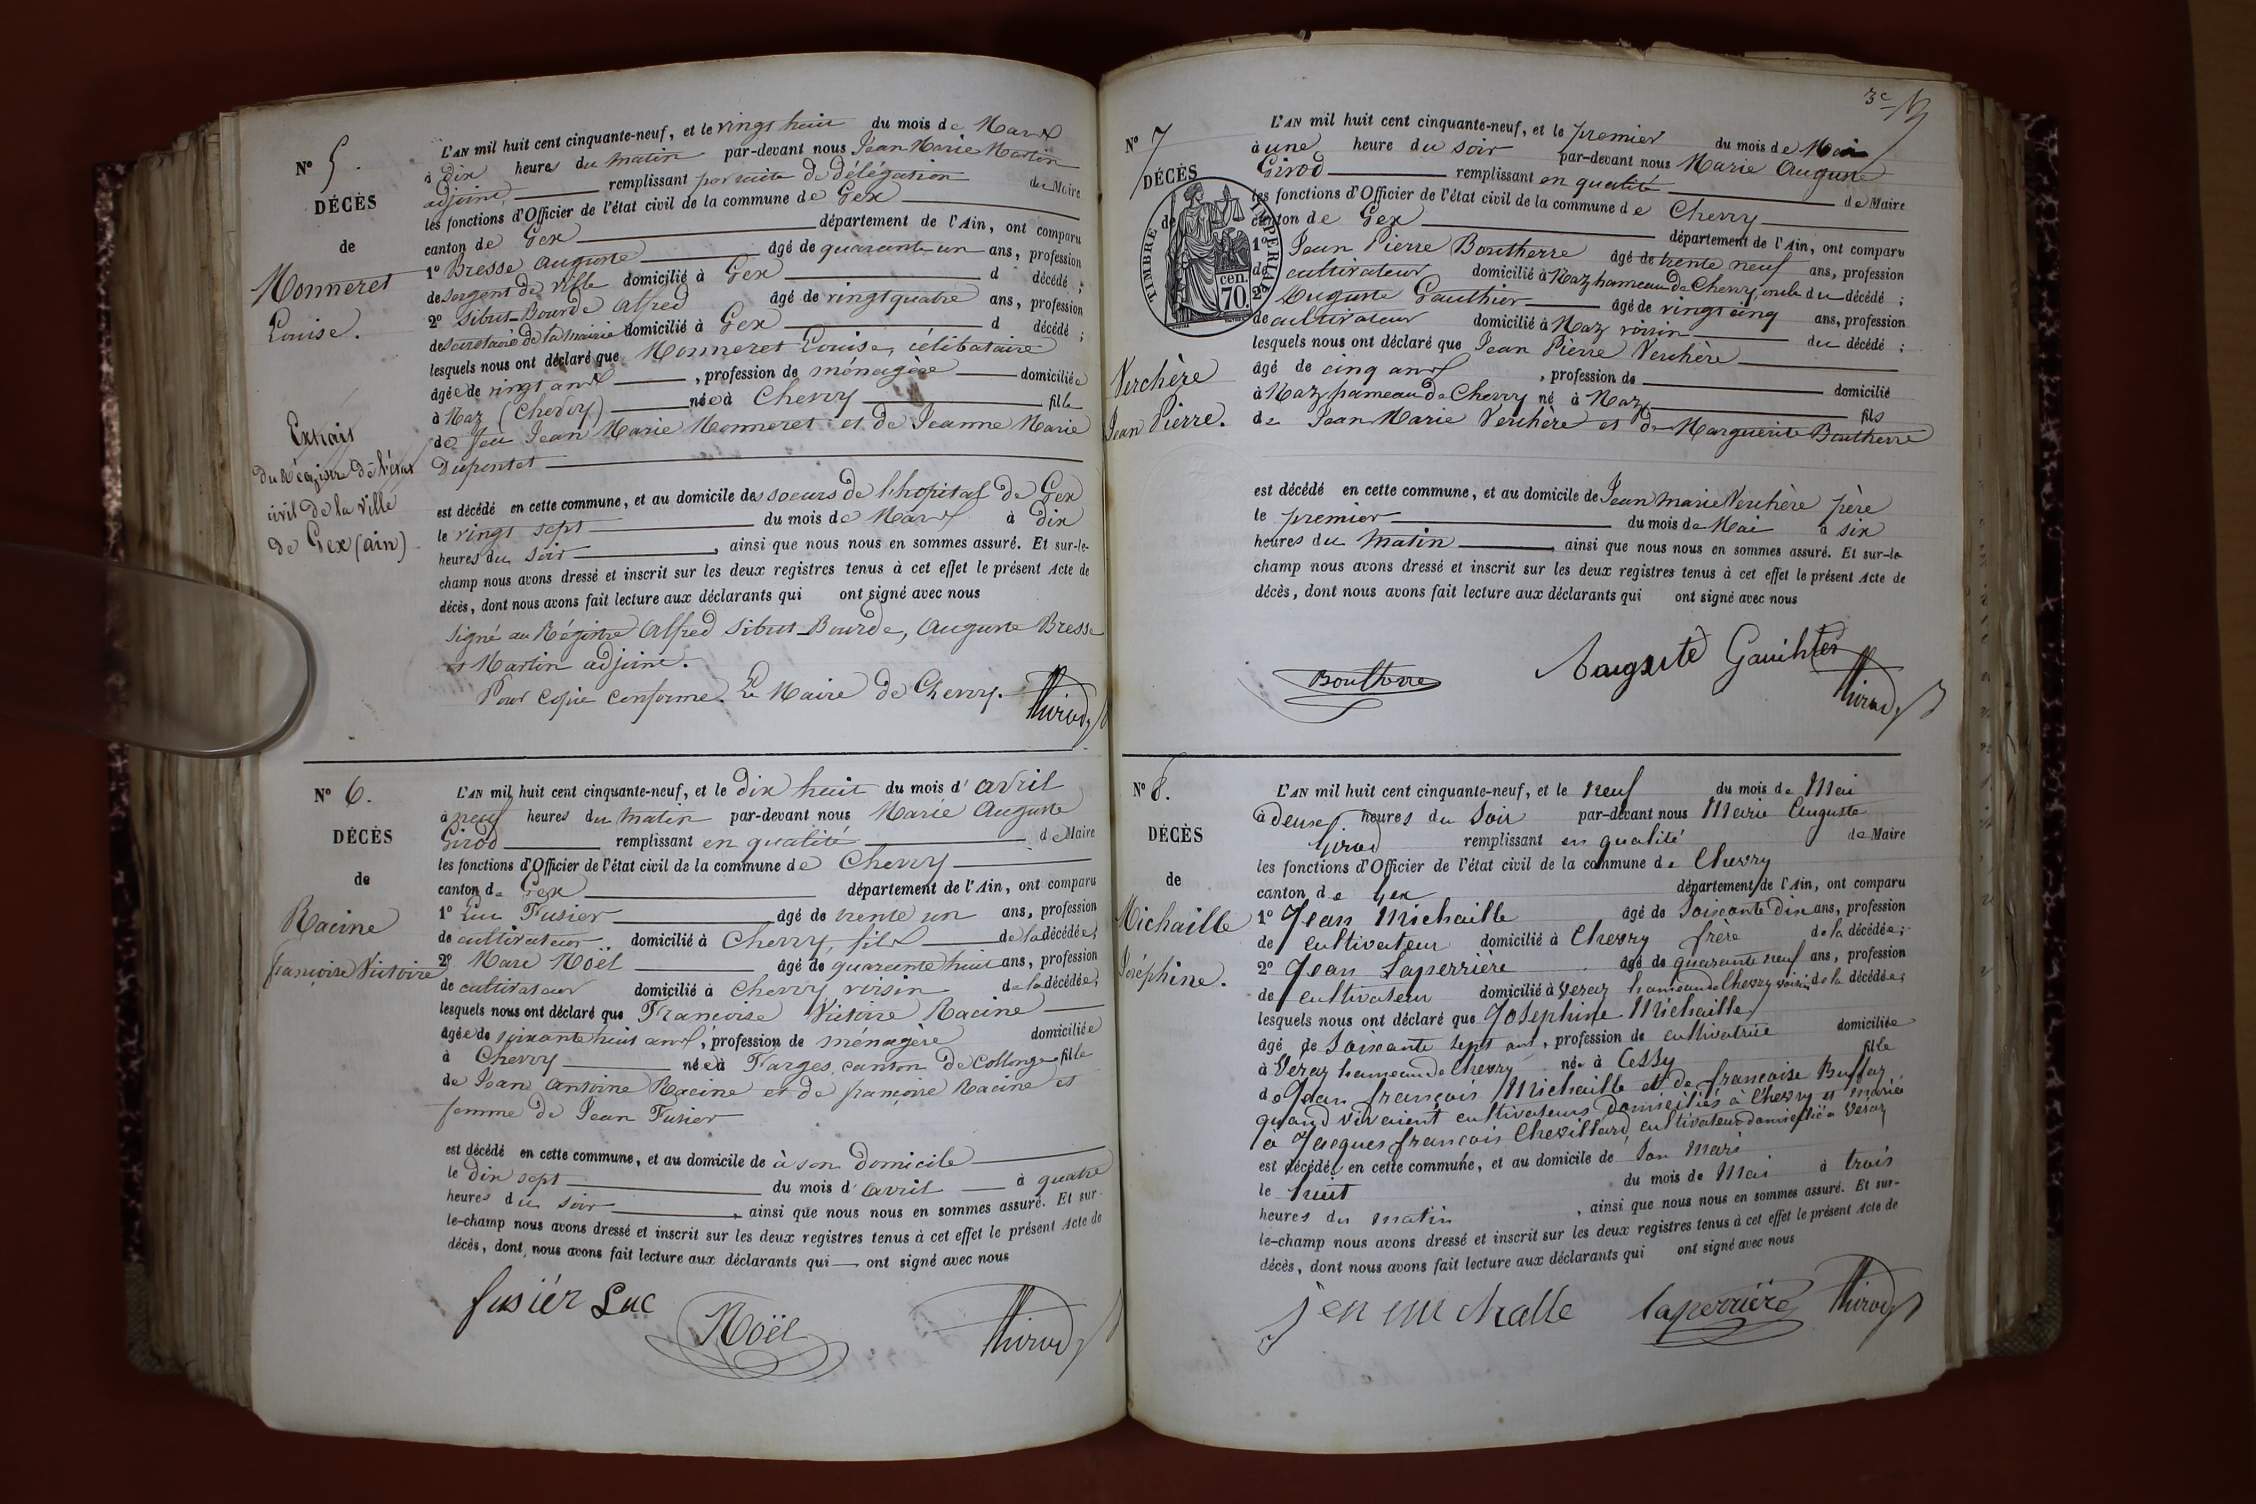 N° 5.
DÉCÈS
de
Monneret
Louise.
Extrait
du Régistre de l'état
civil de la ville
de Gex (ain)
L'AN mil huit cent cinquante-neuf, et le vingt huit du mois de Mars
à dix heures du matin par-devant nous Jean Marie Martin
adjoint, remplissant par suite de délégation de Maire
les fonctions d'Officier de l'état civil de la commune de Gex
canton de Gex département de l'Ain, ont comparu
1° Bresse Auguste âgé de quarante un ans, profession
de sergent de ville domicilié à Gex d décédé ;
2° Sibut-Bourde Alfred âgé de vingt quatre ans, profession
de secretaire de la mairie domicilié à Gex d décédé ;
lesquels nous ont déclaré que Monneret Louise, célibataire
âgée de vingt ans, profession de ménagère domiciliée
à Naz (Chevry) née à Chevry fille
de feu Jean Marie Monneret et de Jeanne Marie
Dupontet
est décédé en cette commune, et au domicile des soeurs de l'hopital de Gex
le vingt sept du mois de Mars à dix
heures du soir, ainsi que nous nous en sommes assuré. Et sur-le-
champ nous avons dressé et inscrit sur les deux registres tenus à cet effet le présent Acte de
décès, dont nous avons fait lecture aux déclarants qui ont signé avec nous
Signé au Régistre Alfred Sibut-Bourde, Auguste Bresse
et Martin adjoint.
Pour copie conforme. Le Maire de Chevry.
Girod
N° 6.
DÉCÈS
de
Racine
françoise Victoire
L'AN mil huit cent cinquante-neuf, et le dix huit du mois d' avril
à neuf heures du matin par-devant nous Marie Auguste
Girod remplissant en qualité de Maire
les fonctions d'Officier de l'état civil de la commune de Chevry
canton de Gex département de l'Ain, ont comparu
1° Luc Fusier âgé de trente un ans, profession
de cultivateur domicilié à Chevry, fils de la décédée ;
2° Marc Noël âgé de quarante huit ans, profession
de cultivateur domicilié à Chevry voisin de la décédée ;
lesquels nous ont déclaré que Françoise Victoire Racine
âgée de soixante huit ans, profession de ménagère domiciliée
à Chevry née à Farges, canton de Collonge fille
de Jean Antoine Racine et de françoise Racine et
femme de Jean Fusier
est décédé en cette commune, et au domicile de à son domicile
le dix sept du mois d' avril à quatre
heures du soir, ainsi que nous nous en sommes assuré. Et sur-
le-champ nous avons dressé et inscrit sur les deux registres tenus à cet effet le présent Acte de
décès, dont nous avons fait lecture aux déclarants qui ont signé avec nous
fusiér Luc
Noël
Girod
3e
N° 7
DÉCÈS
de
TIMBRE IMPERIAL
70. cen.
Verchère
Jean Pierre.
L'AN mil huit cent cinquante-neuf, et le premier du mois de Mai
à une heure du soir par-devant nous Marie Auguste
Girod remplissant en qualité de Maire
les fonctions d'Officier de l'état civil de la commune de Chevry
canton de Gex département de l'Ain, ont comparu
1° Jean Pierre Boutherre âgé de trente neuf ans, profession
de cultivateur domicilié à Naz, hameau de Chevry, oncle du décédé ;
2° Auguste Gauthier âgé de vingt cinq ans, profession
de cultivateur domicilié à Naz voisin du décédé ;
lesquels nous ont déclaré que Jean Pierre Verchère
âgé de cinq ans, profession de domicilié
à Naz, hameau de Chevry né à Naz fils
de Jean Marie Verchère et de Marguerite Boutherre
est décédé en cette commune, et au domicile de Jean Marie Verchère père
le premier du mois de Mai à six
heures du matin, ainsi que nous nous en sommes assuré. Et sur-le-
champ nous avons dressé et inscrit sur les deux registres tenus à cet effet le présent Acte de
décès, dont nous avons fait lecture aux déclarants qui ont signé avec nous
Boutherre
Auguste Gauthier
Girod
N° 8.
DÉCÈS
de
Michaille
Joséphine.
L'AN mil huit cent cinquante-neuf, et le neuf du mois de Mai
à deux heures du soir par-devant nous Marie Auguste
Girod remplissant en qualité de Maire
les fonctions d'Officier de l'état civil de la commune de Chevry
canton de Gex département de l'Ain, ont comparu
1° Jean Michaille âgé de soixante dix ans, profession
de cultivateur domicilié à Chevry frère de la décédée ;
2° Jean Laperrière âgé de quarante neuf ans, profession
de cultivateur domicilié à Veraz hameau de Chevry voisin de la décédée ;
lesquels nous ont déclaré que Joséphine Michaille
âgé de soixante sept ans, profession de cultivatrice domiciliée
à Véraz hameau de Chevry née à Cessy fille
de Jean françois Michaille et de françoise
quand vivaient cultivateurs domiciliés à Chevry et mariée
à Jacques françois Chevillard, cultivateur domicilié à Veraz
est décédée en cette commune, et au domicile de son mari
le huit du mois de Mai à trois
heures du matin, ainsi que nous nous en sommes assuré. Et sur-
le-champ nous avons dressé et inscrit sur les deux registres tenus à cet effet le présent Acte de
décès, dont nous avons fait lecture aux déclarants qui ont signé avec nous
laperrière
Girod